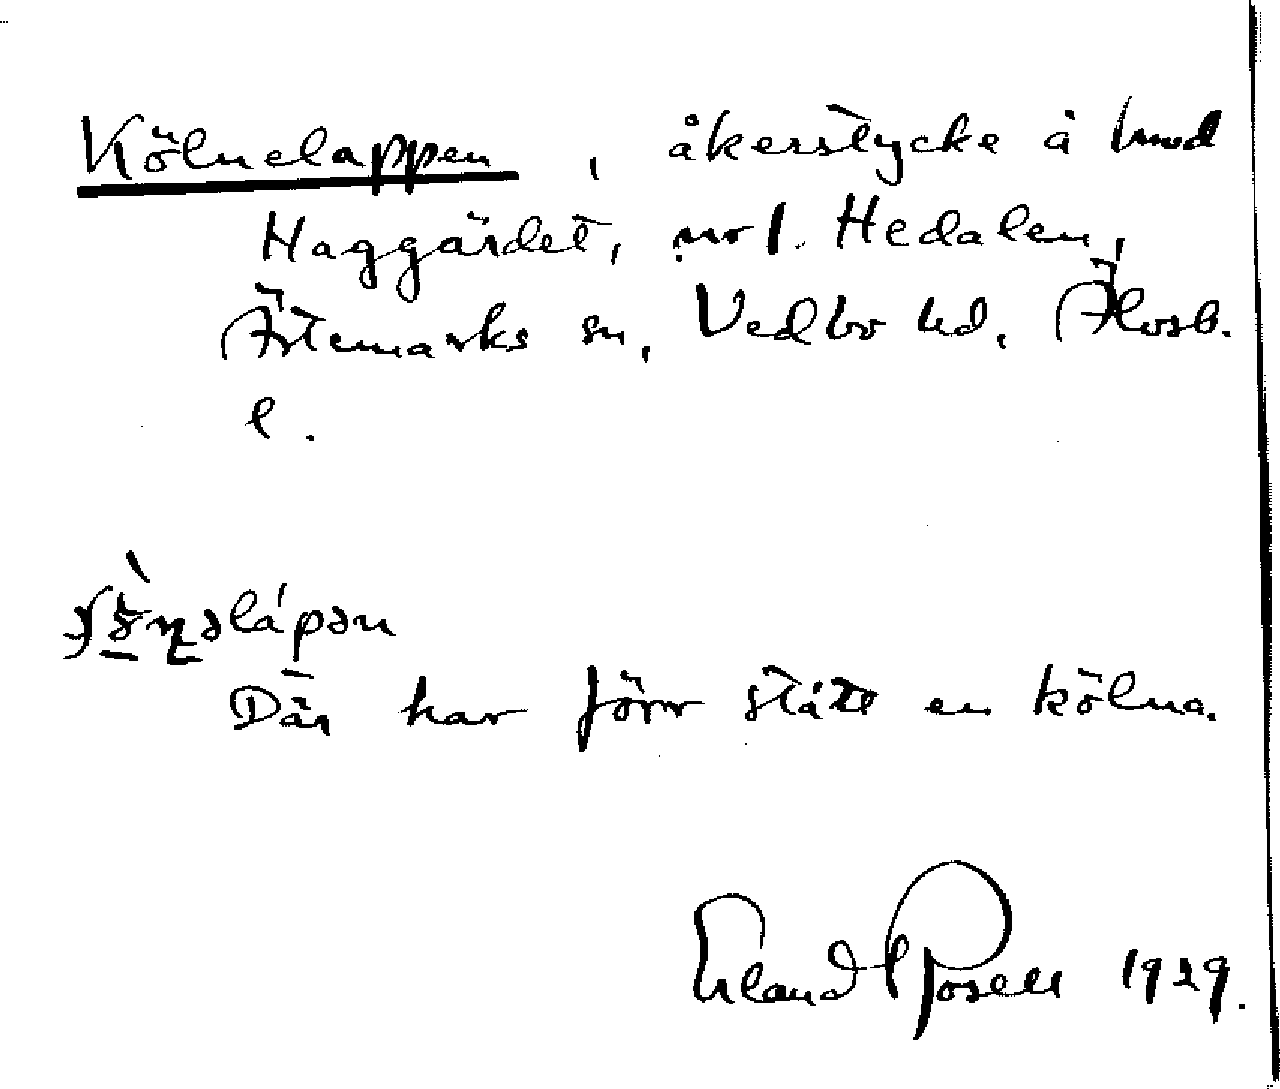 Kölnelappen, åkerstycke å hmd
Haggärdet, nr 1. Hedalen,
Ärtemarks sn, Vedbo hd, Älvsb.
l.
Där har förr stått en kölna.
Erland Rosell 1929.